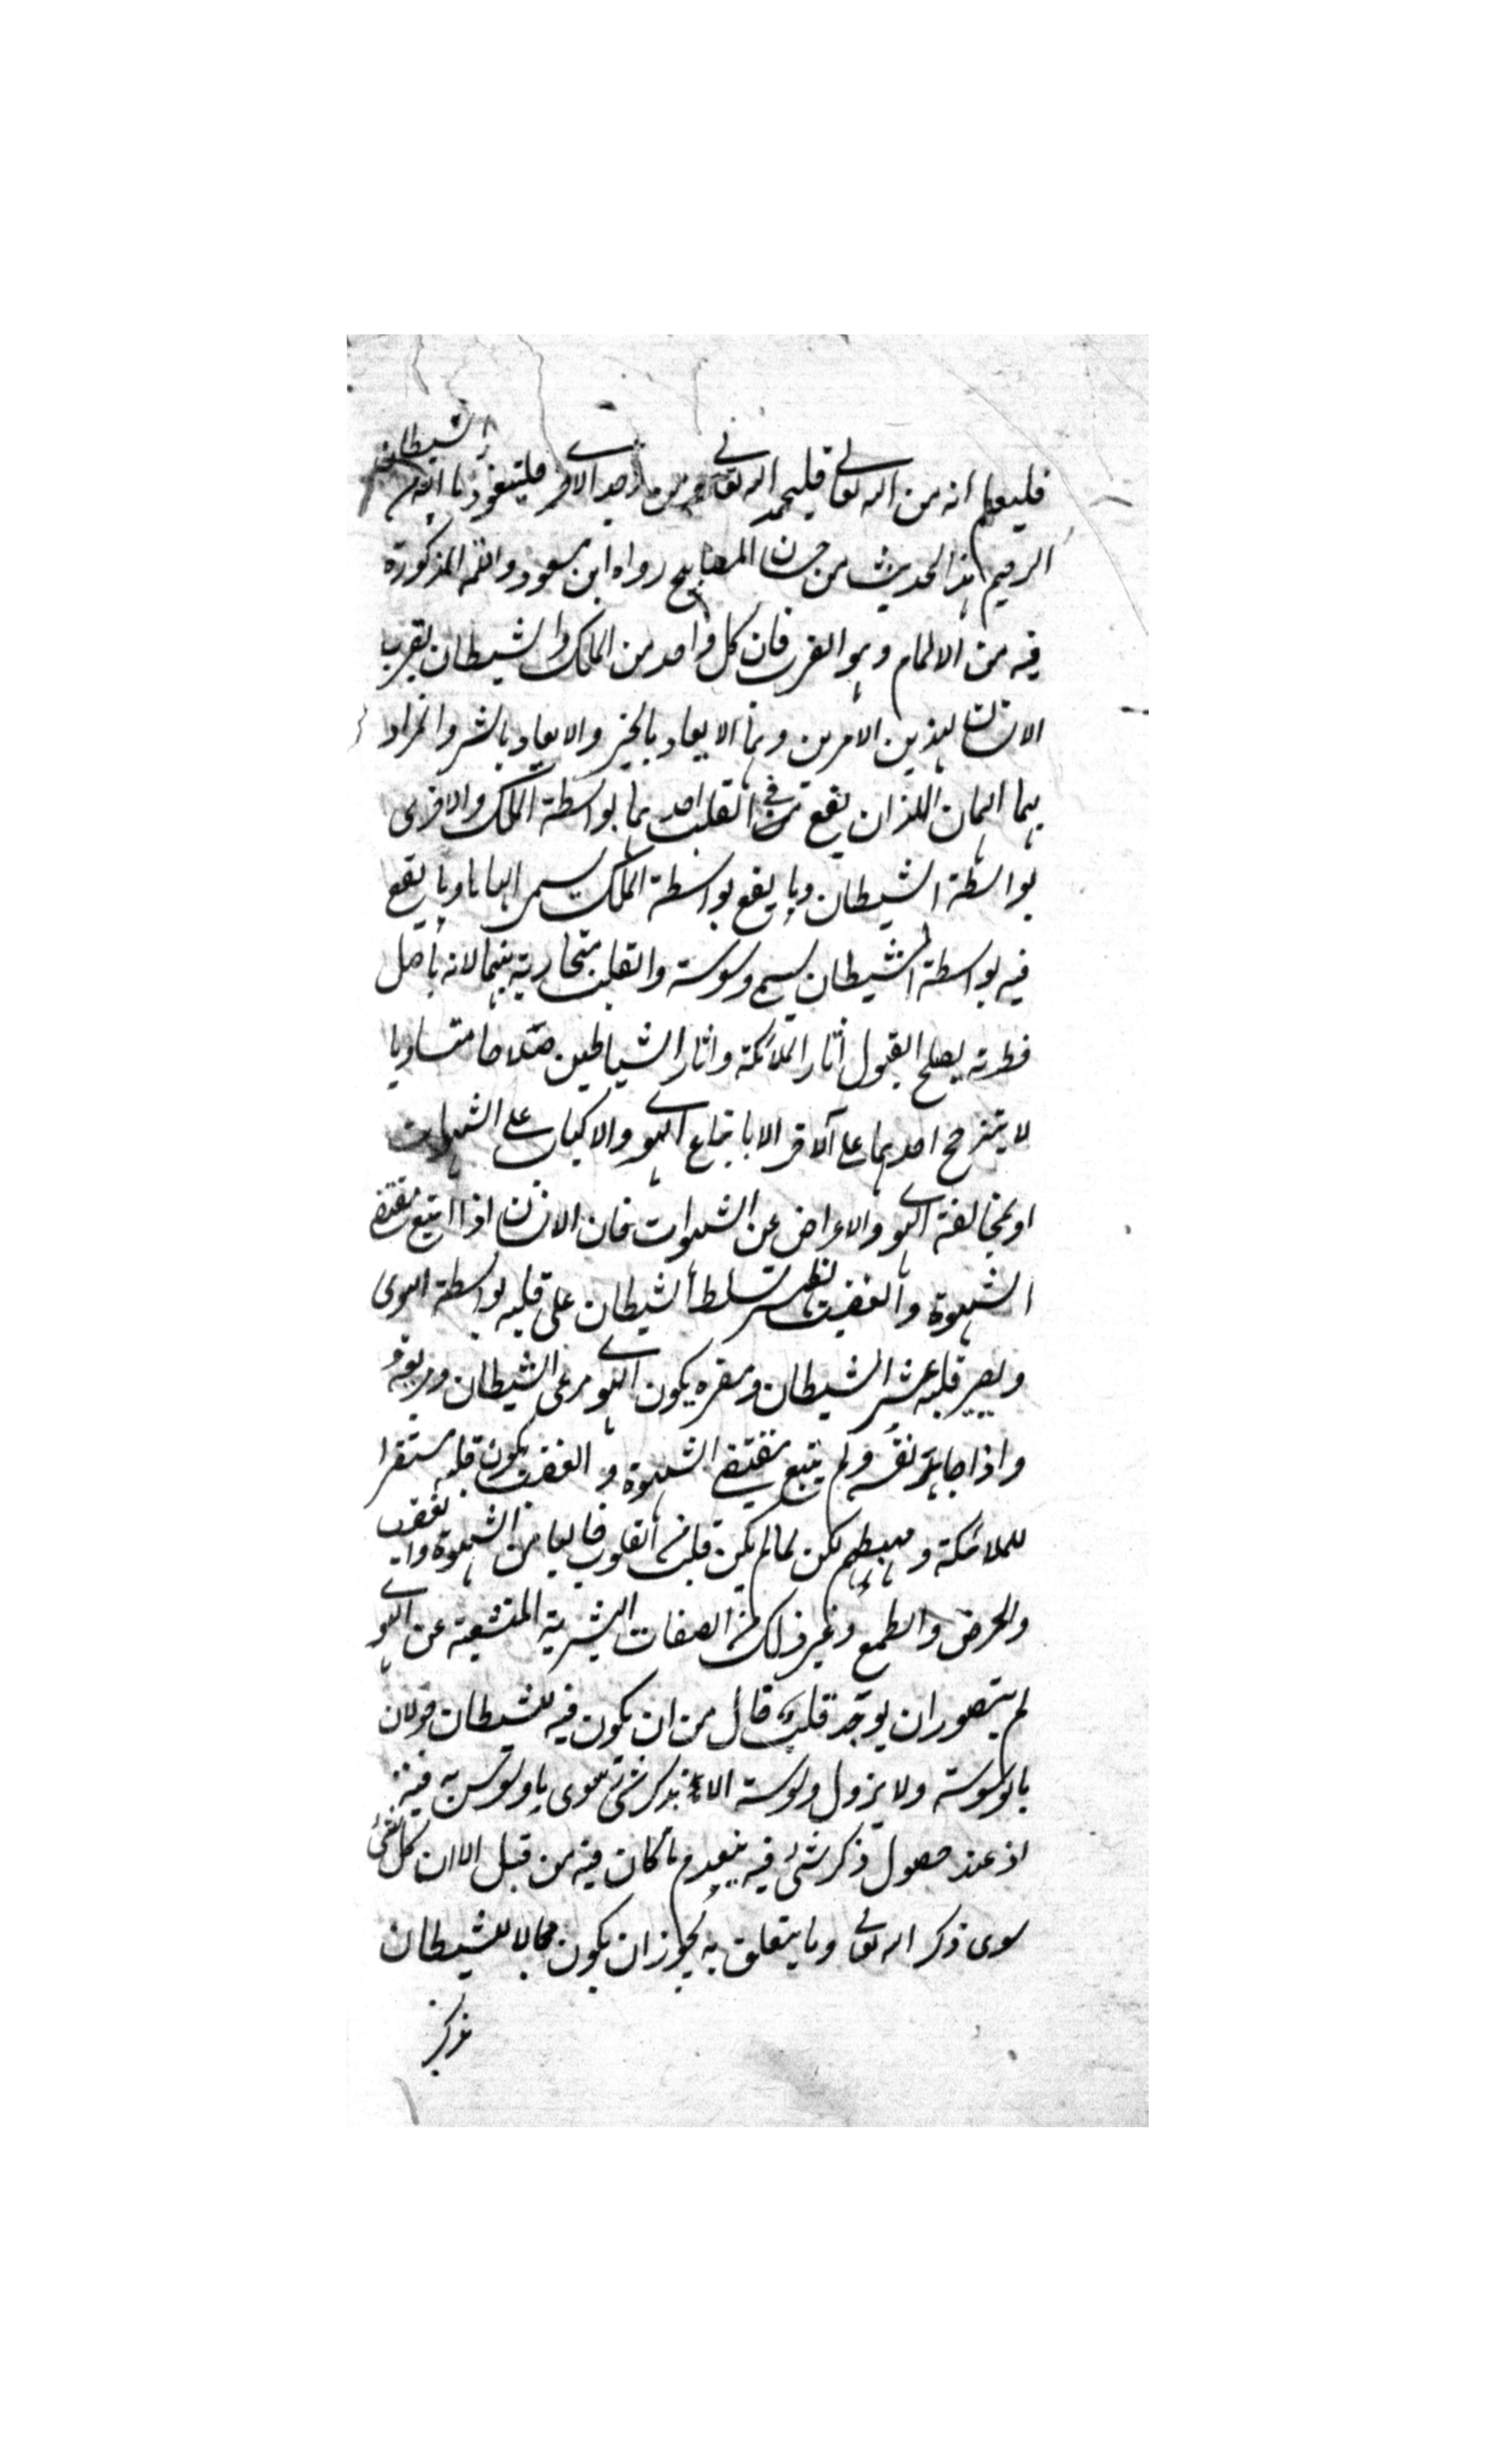 فليعلم انه من الله تعالى فليحمد الله تعالى ومن وجد الاخرى فليتعوذ بالله من الشيطان
الرجيم هذا الحديث من حسان المصابيح رواه ابن مسعود واللمة المذكورة
فيه من الالمام وهو القرب فان كل واحد من الملك والشيطان يقرب
الانسان بهذين الامرين وهما الايعاد بالخير والايعاد بالشر والمراد
بهما الهمان اللذان يقع في القلب احدهما بواسطة الملك والاخرى
بواسطة الشيطان وما يقع بواسطة الملك يسمى الهاما وما يقع
فيه بواسطة الشيطان يسمى وسوسة والقلب متجاذبة بينهما لانه باصل
فطرته يصلح لقبول اثار الملائكة واثار الشياطين صلاحا متساويا
لا يترجح احدهما على الآخر الا باتباع الهوى والاكباب على الشهوات
او بمخالفة الهوى والاعراض عن الشهوات فان الانسان اذا اتبع مقتضى
الشهوة والغضب يظهر تسلط الشيطان على قلبه بواسطة الهوى
ويصير قلبه عش الشيطان ومقره يكون الهوى مرعى الشيطان ومربعه و
واذا جاهد نفسه ولم يتبع مقتضى الشهوة والغضب يكون قلبه مستقرا
للملائكة ومهبطهم لكن لما لم يكن قلب من القلوب خاليا من الشهوة والغضب
والحرص والطمع وغير ذلك من الصفات البشرية المتشعبة عن الهوى
لم يتصور ان يوجد قلب خال من ان يكون فيه للشيطان جولان
بالوسوسة ولا يزول وسوسة الا عند ذكر شئ سوى ما وسوس به فيه
اذ عند حصول ذكر شئ فيه ينعدم ما كان فيه من قبل الا ان كل شئ
سوى ذكر الله تعالى وما يتعلق به يجوز ان يكون مجالا للشيطان